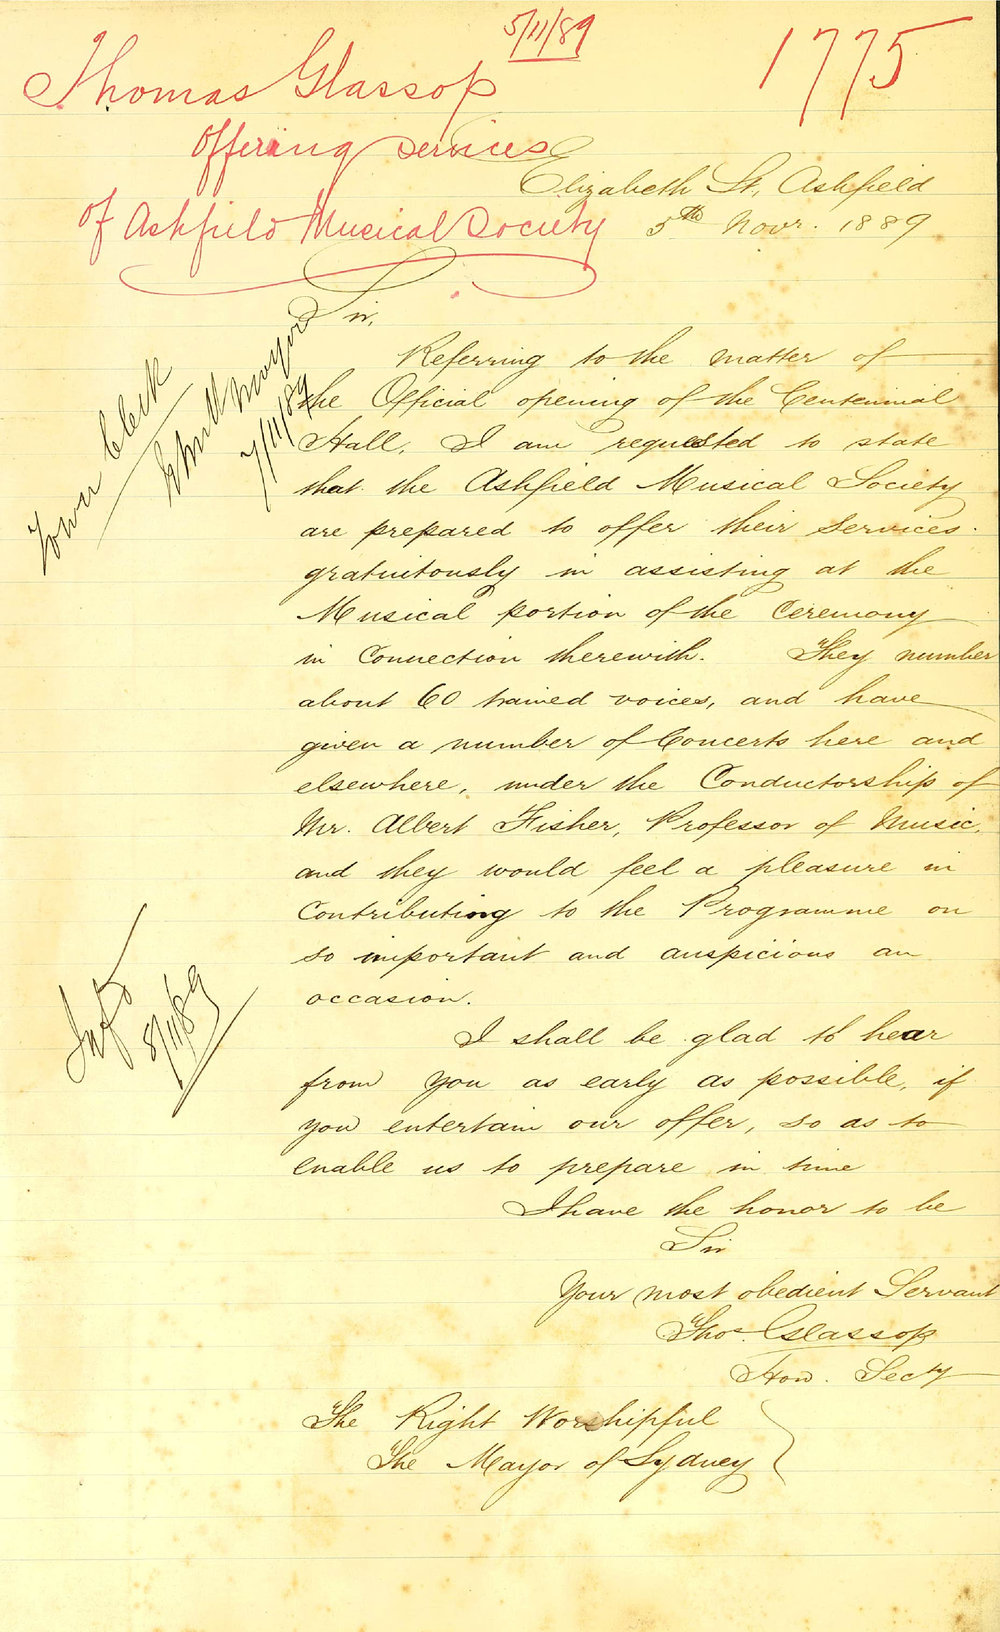 5/11/89
1775
Thomas Glassop
offering services
of Ashfield Musical Society
Elizabeth St., Ashfield
5th Novr. 1889
Sir,
Town Clerk
Mayor
7/11/89
Referring to the matter of
the Official opening of the Centennial
Hall, I am requested to state
that the Ashfield Musical Society
are prepared to offer their services
gratuitously in assisting at the
Musical portion of the Ceremony
in Connection therewith. They number
about 60 trained voices, and have
given a number of Concerts here and
elsewhere, under the Conductorship of
Mr. Albert Fisher, Professor of Music,
and they would feel a pleasure in
Contributing to the Programme on
so important and auspicious an
occasion.
8/11/89
I shall be glad to hear
from you as early as possible, if
you entertain our offer, so as to
enable us to prepare in time
I have the honor to be
Sir
Your most obedient Servant
Thos. Glassop
Hon. Secty
The Right Worshipful
The Mayor of Sydney